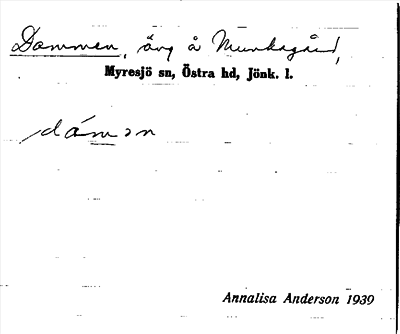 Dammen, äng å Munkagård,
Myresjö sn, Östra hd, Jönk. l.
dámən
Annalisa Anderson 1939